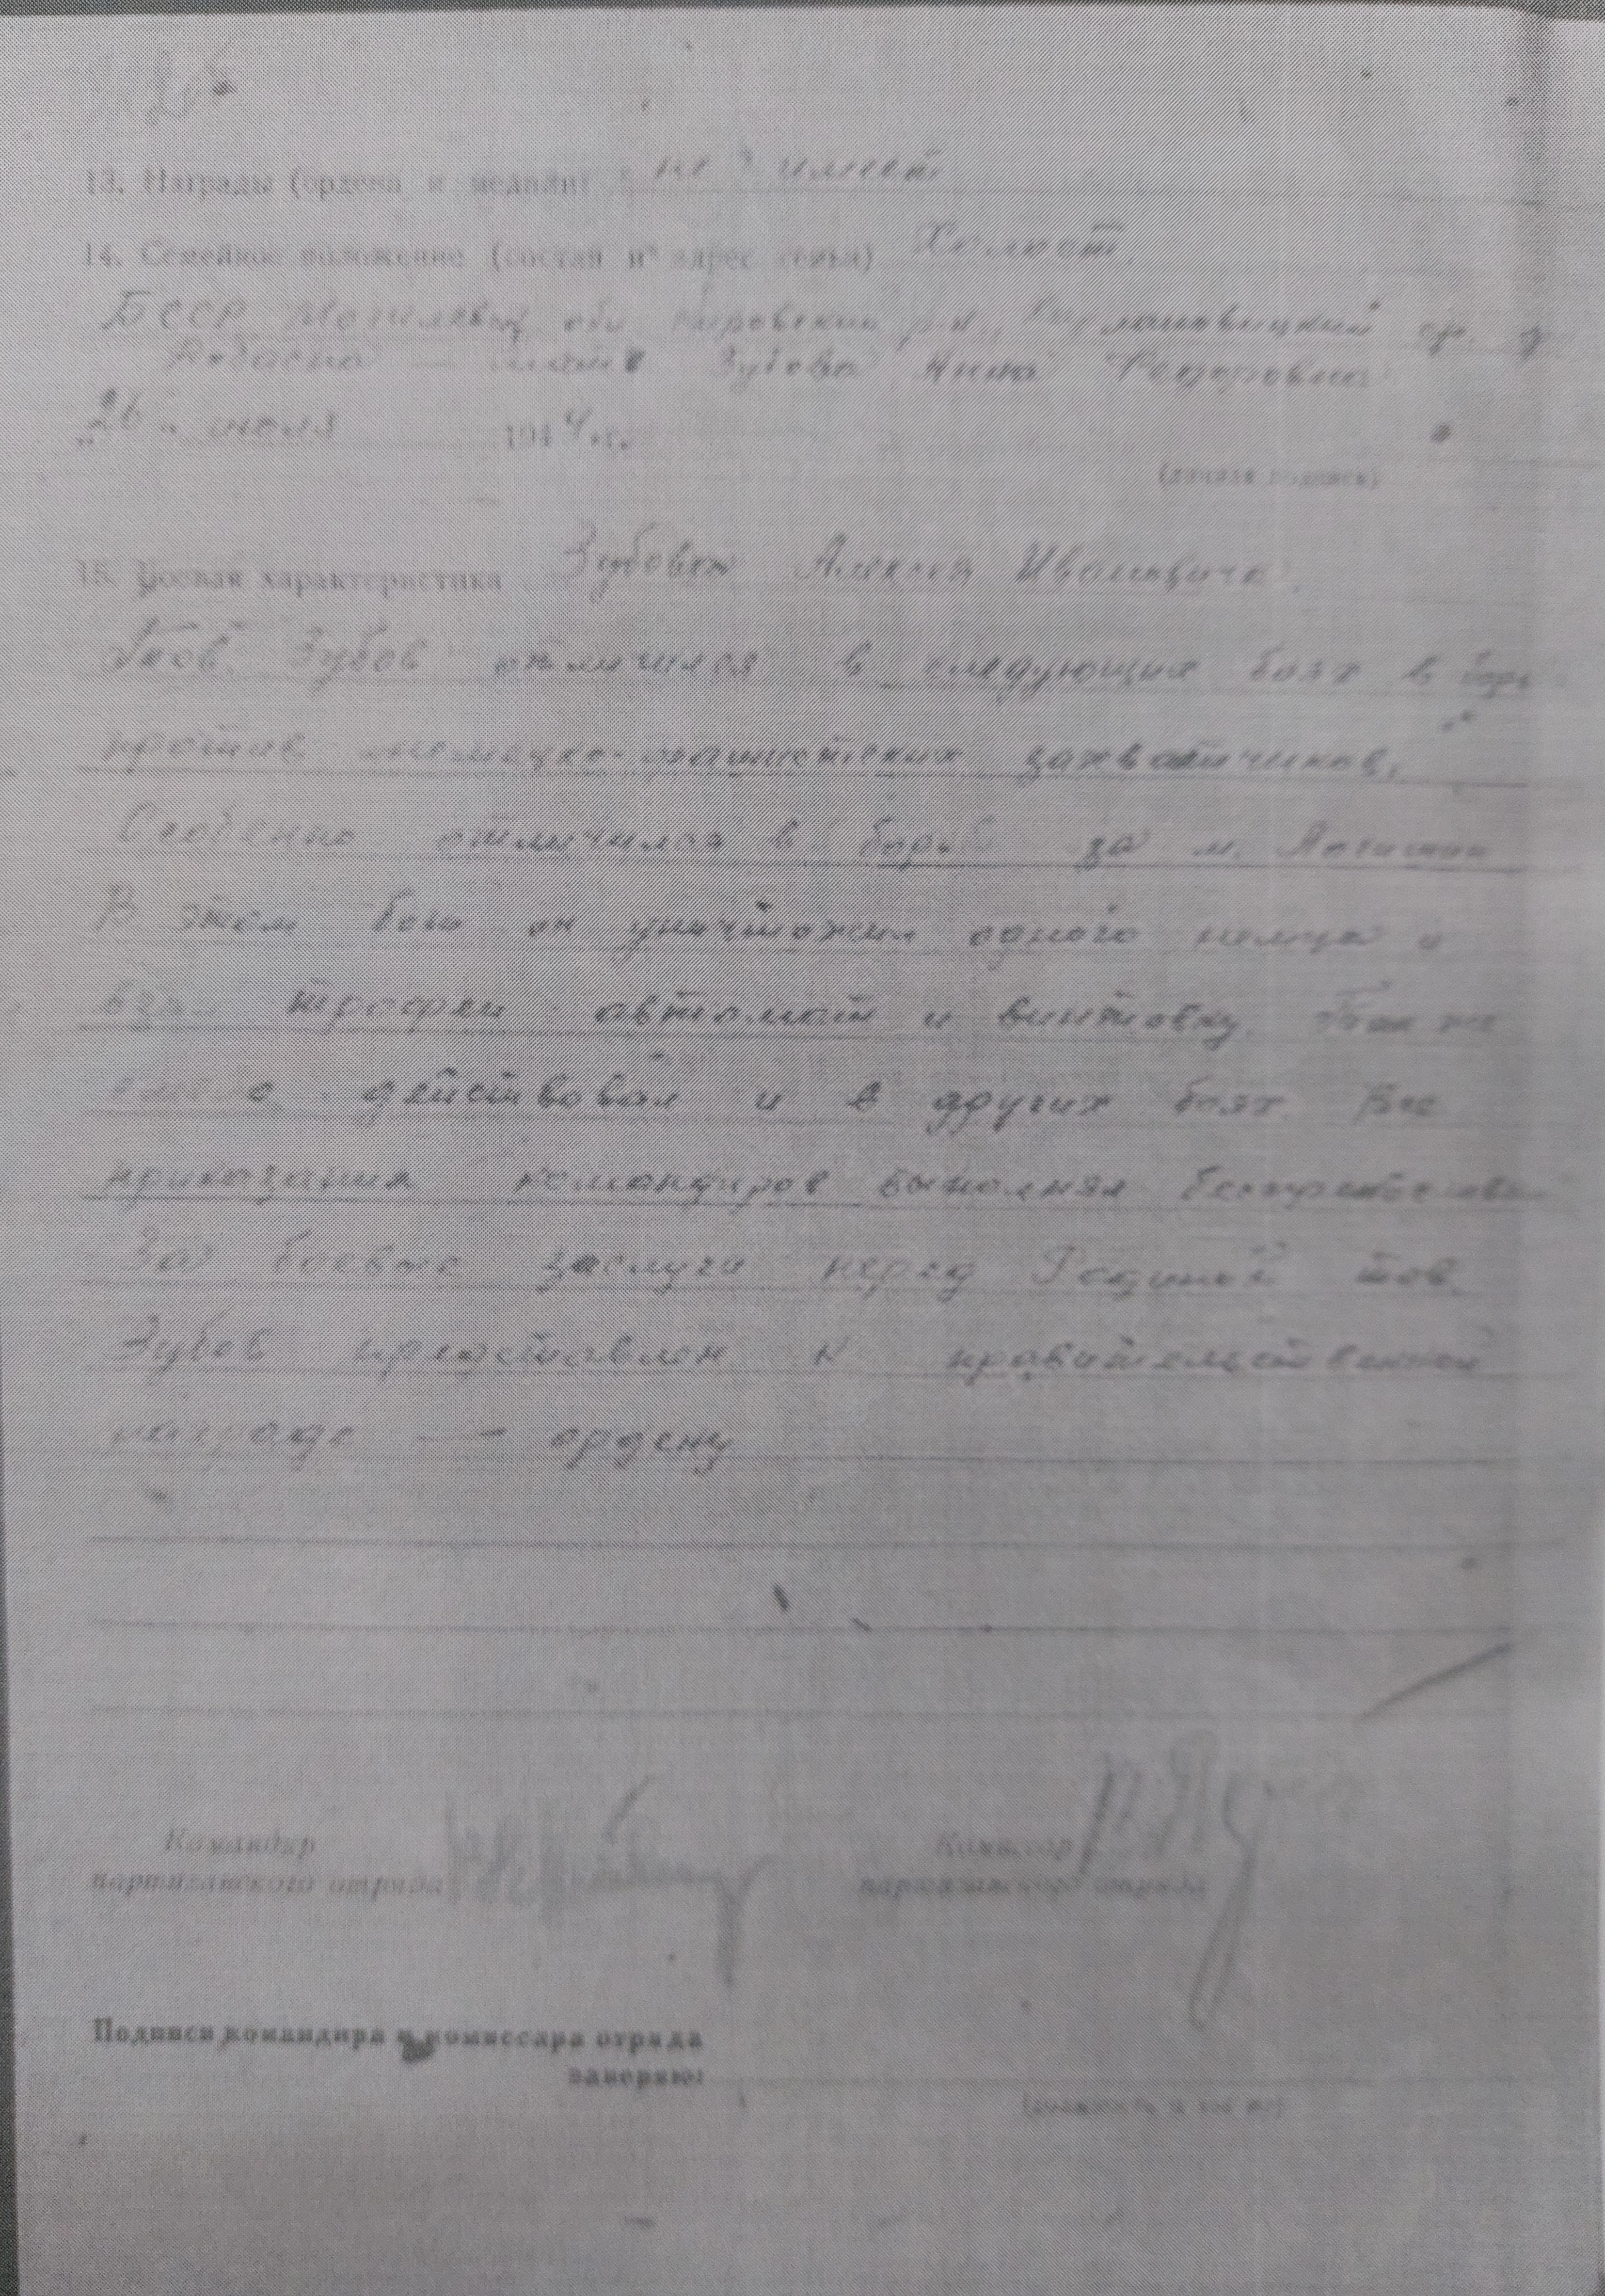 13. Награды (ордена и медали) не имеет
14. Семейное положение (состав и адрес семьи) Холост
БССР Могилевск обл Кировский р-н,
мать Зубова Анна Федоровна
"26" июля 1944 г.
(личная подпись)
15. Боевая характеристика Зубова Алексея Ивановича.
Тов. Зубов отличился в следующих боях в борь
против немецко-фашистских захватчиков.
Особенно отличился в борьбе за м. Логишин
В этом бою он уничтожил одного немца и
взял трофеи автомат и винтовку. Так же
действовал и в других боях Все
приказания командиров выполнял
За боевые заслуги перед Родиной тов.
Зубов представлен к правительственной
награде — ордену
Командир
партизанского отряда
Комиссар
партизанского отряда
Подписи командира и комиссара отряда
заверяю: